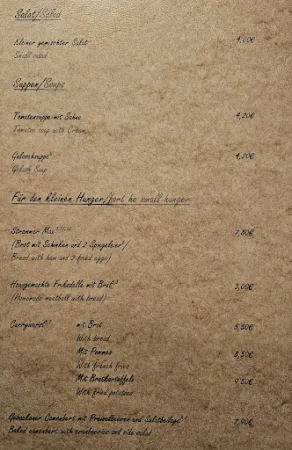 Salat/Salad
Kleiner gemischter Salat 4,00€
Small salad
Suppen/Soups
Tomatensuppe mit Sahne 4,20€
Tomatoe soup with Cream
Gulaschsuppe 4,20€
Gulash Soup
Für den kleinen Hunger/fort he small hunger
Strammer Max 7,80€
(Brot mit Schinken und 2 Spiegeleier)
Bread with ham and 2 fried eggs)
Hausgemachte Frikadelle mit Brot 3,00€
(Homemade meatball with bread)
Currywurst mit Brot 5,50€
With bread
Mit Pommes 8,50€
With french fries
Mit Bratkartoffeln 9,50€
With fried potatoes
Gebackener Camembert mit Preiselbeeren und Salatbeilage 7,90€
Baked camembert with cranberries and side salad